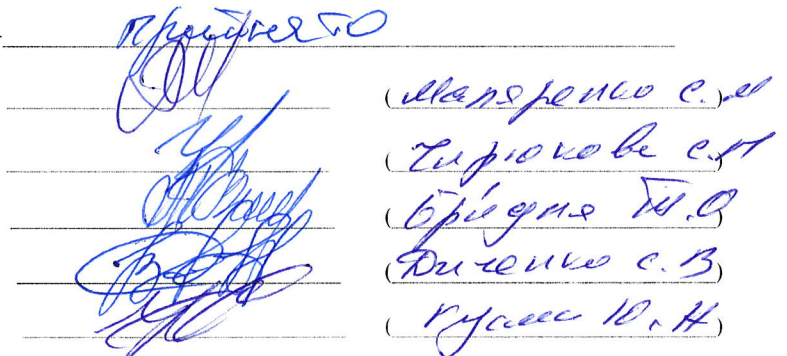 прийнято
(Маляренко С.М)
(Чирюкова С.М)
(Бридня Т.О)
(Диченко С.В)
(Ю.Н)